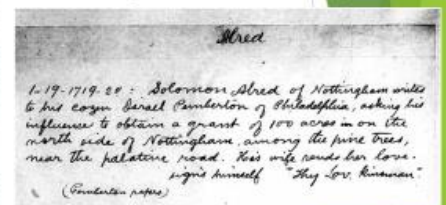 Alred
1-19-1719-20 : Solomon Alred of Nottingham writes
to his cozn Israel Pemberton of Philadelphia, asking his
influence to obtain a grant of 100 acres in on the
north side of Nottingham, among the pine trees,
near the palatine road. His wife sends her love.
signs himself "Thy Lov. Kinsman"
(Pemberton papers)